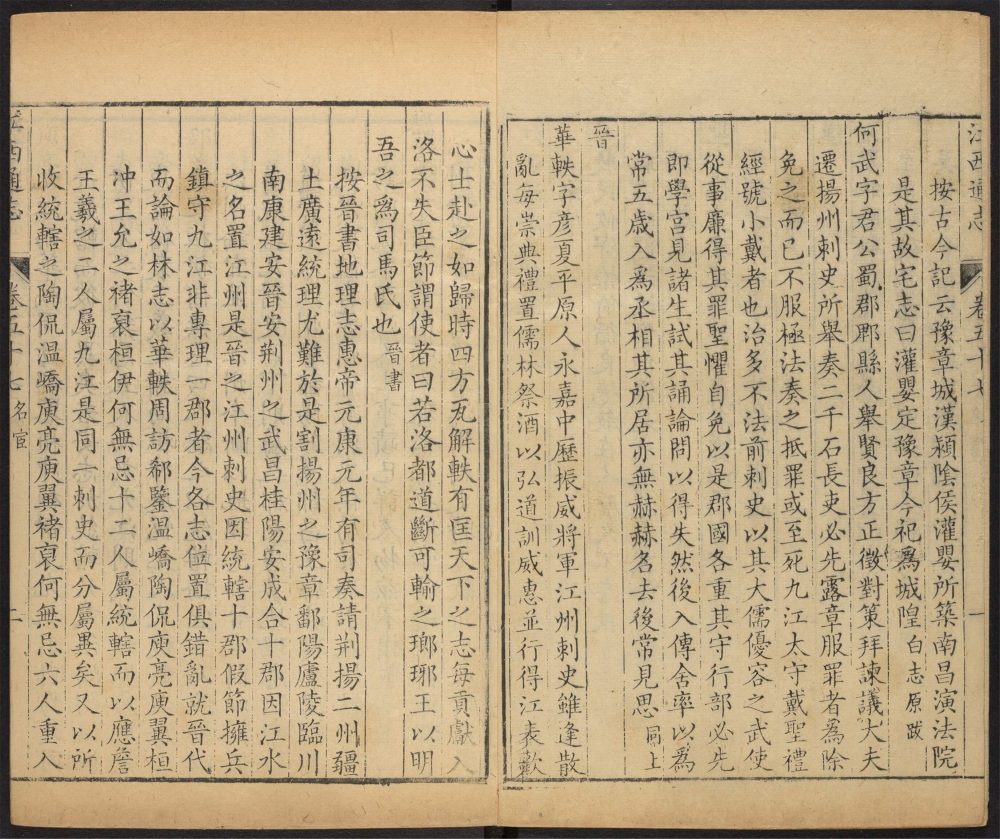 江西通志 卷五十七 一
按古今記云豫章城漢潁陰侯灌嬰所築南昌演法院
是其故宅志曰灌嬰定豫章今祀爲城隍白志原跋
何武字君公蜀郡郫縣人舉賢良方正徵對策拜諫議大夫
遷揚州刺史所舉奏二千石長吏必先露章服罪者爲除
免之而已不服極法奏之抵罪或至死九江太守戴聖禮
經號小戴者也治多不法前刺史以其大儒優容之武使
從事廉得其罪聖懼自免以是郡國各重其守行部必先
即學宮見諸生試其誦論問以得失然後入傳舍率以爲
常五歲入爲丞相其所居亦無赫赫名去後常見思同上
晉
華軼字彥夏平原人永嘉中歷振威將軍江州刺史雖逢散
亂每崇典禮置儒林祭酒以弘道訓威惠並行得江表歡
心士赴之如歸時四方瓦解軼有匡天下之志每貢獻入
洛不失臣節謂使者曰若洛都道斷可輸之瑯琊王以明
吾之爲司馬氏也晉書
按晉書地理志惠帝元康元年有司奏請荆揚二州疆
土廣遠統理尤難於是割揚州之豫章鄱陽廬陵臨川
南康建安晉安荆州之武昌桂陽安成合十郡因江水
之名置江州是晉之江州刺史因統轄十郡假節擁兵
鎮守九江非專理一郡者今各志位置俱錯亂就晉代
而論如林志以華軼周訪郗鑒溫嶠陶侃庾亮庾翼桓
冲王允之褚裒桓伊何無忌十二人屬統轄而以應詹
王羲之二人屬九江是同一刺史而分屬異矣又以所
收統轄之陶侃溫嶠庾亮庾翼褚裒何無忌六人重入
江西通志 卷五十七 名宦 二